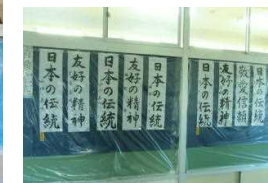 日本の伝統
友好の精神
日本の伝統
友好の精神
日本の伝統
日本の伝統
友好の精神
敬愛信頼
日本の伝統